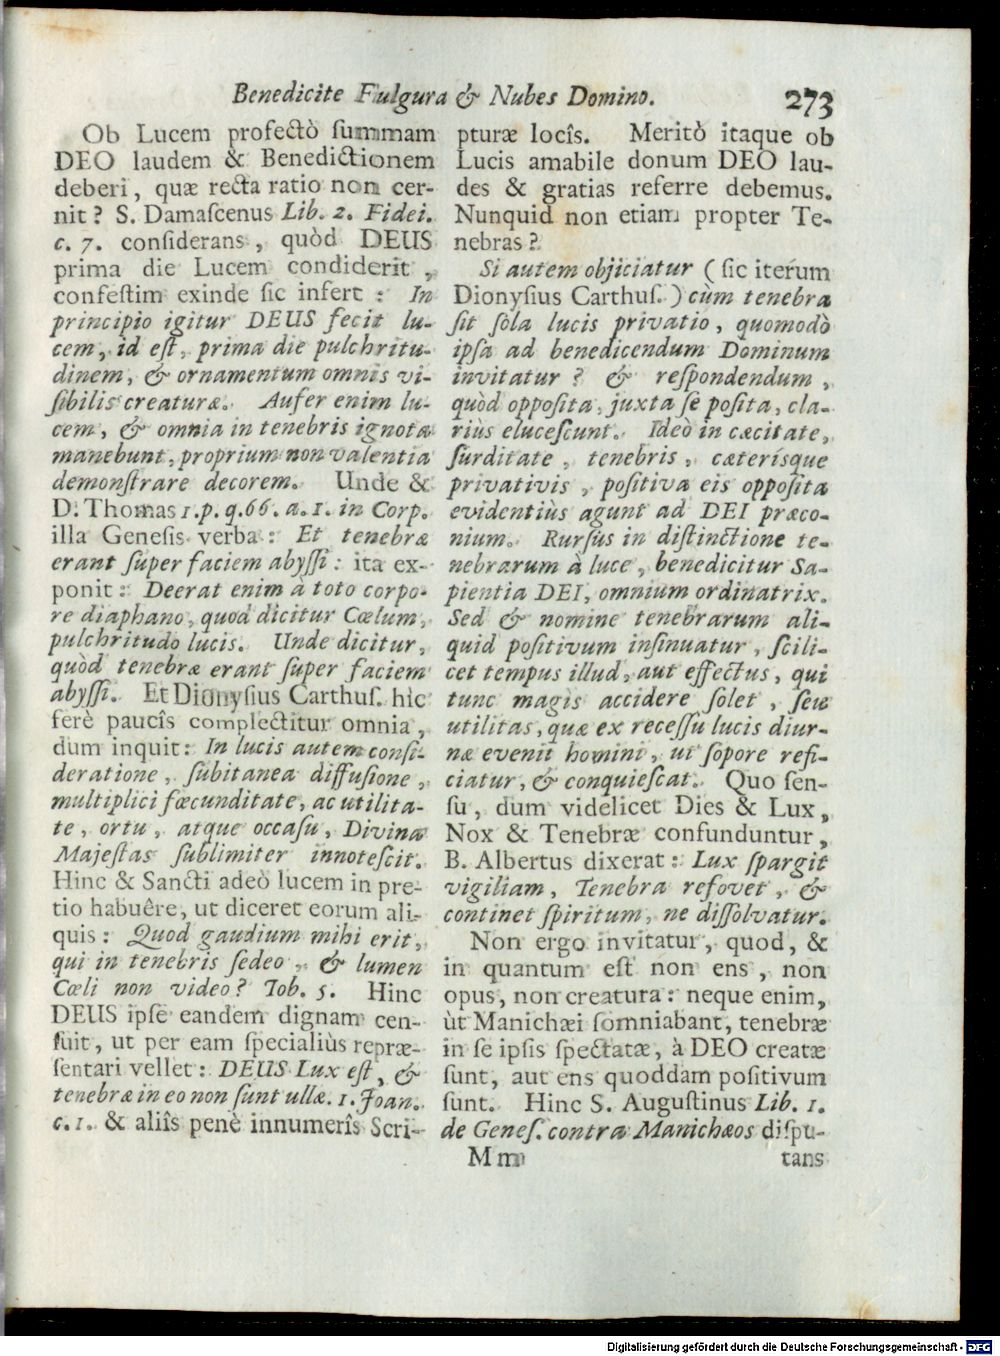 Benedicite Fulgura & Nubes Domino. 273
Ob Lucem profectò ſummam
DEO laudem & Benedictionem
deberi, quæ recta ratio non cer-
nit? S. Damaſcenus Lib. 2. Fidei.
c. 7. conſiderans, quòd DEUS
prima die Lucem condiderit,
confeſtim exinde ſic infert: In
principio igitur DEUS fecit lu-
cem, id eſt, prima die pulchritu-
dinem, & ornamentum omnis vi-
ſibilis creaturæ. Aufer enim lu-
cem, & omnia in tenebris ignota
manebunt, proprium non valentia
demonſtrare decorem. Unde &
D. Thomas 1. p. q. 66. a. 1. in Corp.
illa Geneſis verba: Et tenebræ
erant ſuper faciem abyſſi: ita ex-
ponit: Deerat enim à toto corpo-
re diaphano, quod dicitur Cœlum,
pulchritudo lucis. Unde dicitur,
quòd tenebræ erant ſuper faciem
abyſſi. Et Dionyſius Carthuſ. hic
ferè paucîs complectitur omnia,
dum inquit: In lucis autem conſi-
deratione, ſubitanea diffuſione,
multiplici fœcunditate, ac utilita-
te, ortu, atque occaſu, Divina
Majeſtas ſublimiter innoteſcit.
Hinc & Sancti adeò lucem in pre-
tio habuêre, ut diceret eorum ali-
quis: Quod gaudium mihi erit,
qui in tenebris ſedeo, & lumen
Cœli non video? Tob. 5. Hinc
DEUS ipſe eandem dignam cen-
ſuit, ut per eam ſpecialiùs repræ-
ſentari vellet: DEUS Lux eſt, &
tenebræ in eo non ſunt ullæ. 1. Joan.
c. 1. & aliîs penè innumerîs Scri-
pturæ locîs. Meritò itaque ob
Lucis amabile donum DEO lau-
des & gratias referre debemus.
Nunquid non etiam propter Te-
nebras?
Si autem objiciatur (ſic iterùm
Dionyſius Carthuſ.) cùm tenebra
ſit ſola lucis privatio, quomodò
ipſa ad benedicendum Dominum
invitatur? & reſpondendum,
quòd oppoſita, juxta ſe poſita, cla-
riùs eluceſcunt. Ideò in cæcitate,
ſurditate, tenebris, cæterísque
privativis, poſitiva eis oppoſita
evidentiùs agunt ad DEI præco-
nium. Rurſùs in diſtinctione te-
nebrarum à luce, benedicitur Sa-
pientia DEI, omnium ordinatrix.
Sed & nomine tenebrarum ali-
quid poſitivum inſinuatur, ſcili-
cet tempus illud, aut effectus, qui
tunc magis accidere ſolet, ſeu
utilitas, quæ ex receſſu lucis diur-
næ evenit homini, ut ſopore refi-
ciatur, & conquieſcat. Quo ſen-
ſu, dum videlicet Dies & Lux,
Nox & Tenebræ confunduntur,
B. Albertus dixerat: Lux ſpargit
vigiliam, Tenebra refovet, &
continet ſpiritum, ne diſſolvatur.
Non ergo invitatur, quod, &
in quantum eſt non ens, non
opus, non creatura: neque enim,
ùt Manichæi ſomniabant, tenebræ
in ſe ipſis ſpectatæ, à DEO creatæ
ſunt, aut ens quoddam poſitivum
ſunt. Hinc S. Auguſtinus Lib. 1.
de Geneſ. contra Manichæos diſpu-
Mm tans
Digitalisierung gefördert durch die Deutsche Forschungsgemeinschaft - DFG